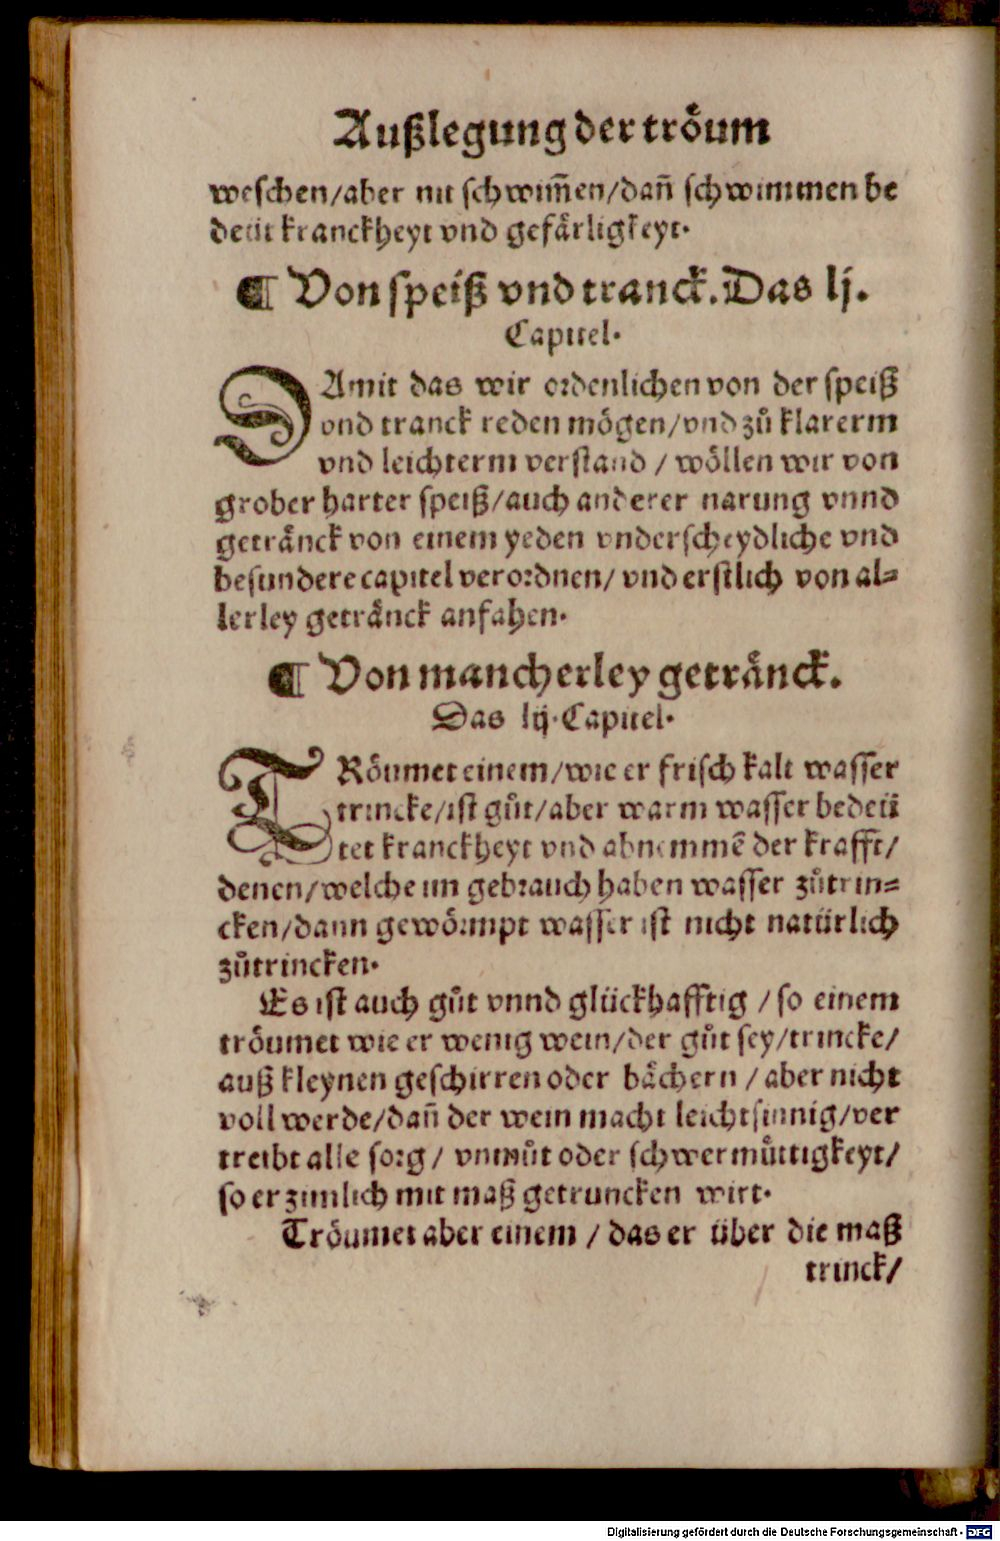 Außlegung der troͤum
weschen/aber nit schwim̃en/dañ schwimmen be
deüt kranckheyt vnd gefaͤrligkeyt.
¶ Von speiß vnd tranck. Das lj.
Capitel.
DAmit das wir ordenlichen von der speiß
vnd tranck reden moͤgen/vnd zuͦ klarerm
vnd leichterm verstand / woͤllen wir von
grober harter speiß/auch anderer narung vnnd
getraͤnck von einem yeden vnderscheydliche vnd
besundere capitel verordnen/ vnd erstlich von al⸗
lerley getraͤnck anfahen.
¶ Von mancherley getraͤnck.
Das lij. Capitel.
TRoͤumet einem/wie er frisch kalt wasser
trincke/ist guͦt/aber warm wasser bedeü
tet kranckheyt vnd abnemmē der krafft/
denen/welche im gebrauch haben wasser zuͦtrin⸗
cken/dann gewoͤrmpt wasser ist nicht natürlich
zuͦtrincken.
Es ist auch guͦt vnnd glückhafftig / so einem
troͤumet wie er wenig wein/der guͦt sey/trincke/
auß kleynen geschirren oder baͤchern / aber nicht
voll werde/dañ der wein macht leichtsinnig/ver
treibt alle sorg/ vnmuͦt oder schwermuͤttigkeyt/
so er zimlich mit maß getruncken wirt.
Troͤumet aber einem / das er über die maß
trinck/
Digitalisierung gefördert durch die Deutsche Forschungsgemeinschaft - DFG